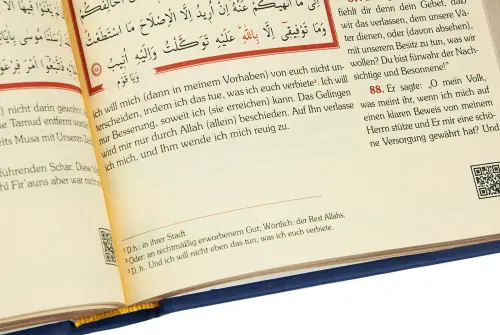 ) nicht darin gewohnt
ie Tamud entfernt wurde
eits Musa mit Unseren Ze
führenden Schar. Diese
hl Fir'auns aber war nich
إِلَىٰ مَا أَنْهَىٰكُمْ عَنْهُ إِنْ أُرِيدُ إِلَّا الْإِصْلَاحَ مَا اسْتَطَعْتُ
وَمَا تَوْفِيقِي إِلَّا بِاللَّهِ عَلَيْهِ تَوَكَّلْتُ وَإِلَيْهِ أُنِيبُ
وَيَا قَوْمِ
ich will mich (dann in meinem Vorhaben) von euch nicht un-
terscheiden, indem ich das tue, was ich euch verbiete³. Ich will
nur Besserung, soweit ich (sie erreichen) kann. Das Gelingen
wird mir nur durch Allah (allein) beschieden. Auf Ihn verlasse
ich mich, und Ihm wende ich mich reuig zu.
fiehlt dir denn dein Gebet, daß
wir das verlassen, dem unsere Vä-
ter dienen, oder (davon absehen),
mit unserem Besitz zu tun, was wir
wollen? Du bist fürwahr der Nach-
sichtige und Besonnene!“
88. Er sagte: „O mein Volk,
was meint ihr, wenn ich mich auf
einen klaren Beweis von meinem
Herrn stütze und Er mir eine schö-
ne Versorgung gewährt hat? Und
¹ D.h.: in ihrer Stadt.
² Oder: an rechtmäßig erworbenem Gut; Wörtlich: der Rest Allahs.
³ D. h.: Und ich will nicht eben das tun, was ich euch verbiete.